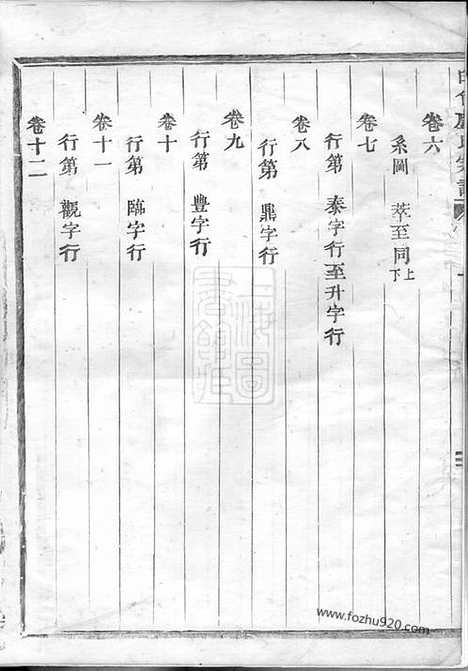 卷六
系圖 萃至同上下
卷七
行第 泰字行至升字行
卷八
行第 鼎字行
卷九
行第 豐字行
卷十
行第 臨字行
卷十一
行第 觀字行
卷十二
上海圖書館藏
www.fozhu920.com